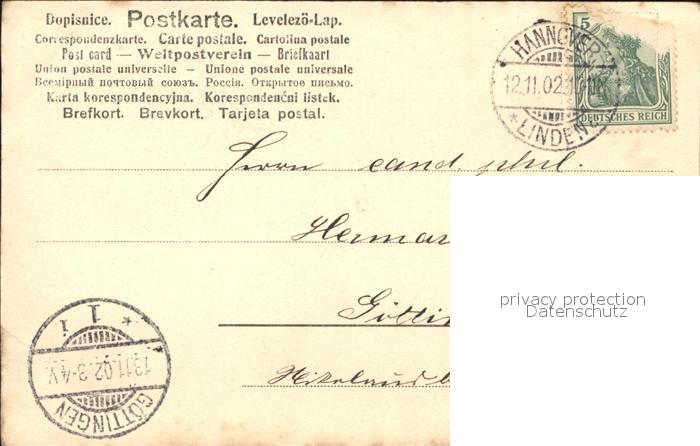 Dopisnice. Postkarte. Levelezö-Lap.
Correspondenzkarte. Carte postale. Cartolina postale
Post card — Weltpostverein — Briefkaart
Union postale universelle — Unione postale universale
Всемірный почтовый союзъ. Россія. Открытое письмо.
Karta korespondencyjna. Korespondenční lístek.
Brefkort. Brevkort. Tarjeta postal.
5
DEUTSCHES REICH
HANNOVER
12.11.02.
* LINDEN
Herrn cand. phil.
Herma
Götti
privacy protection
Datenschutz
* 1 i
13.11.02.3-4.V.
GÖTTINGEN